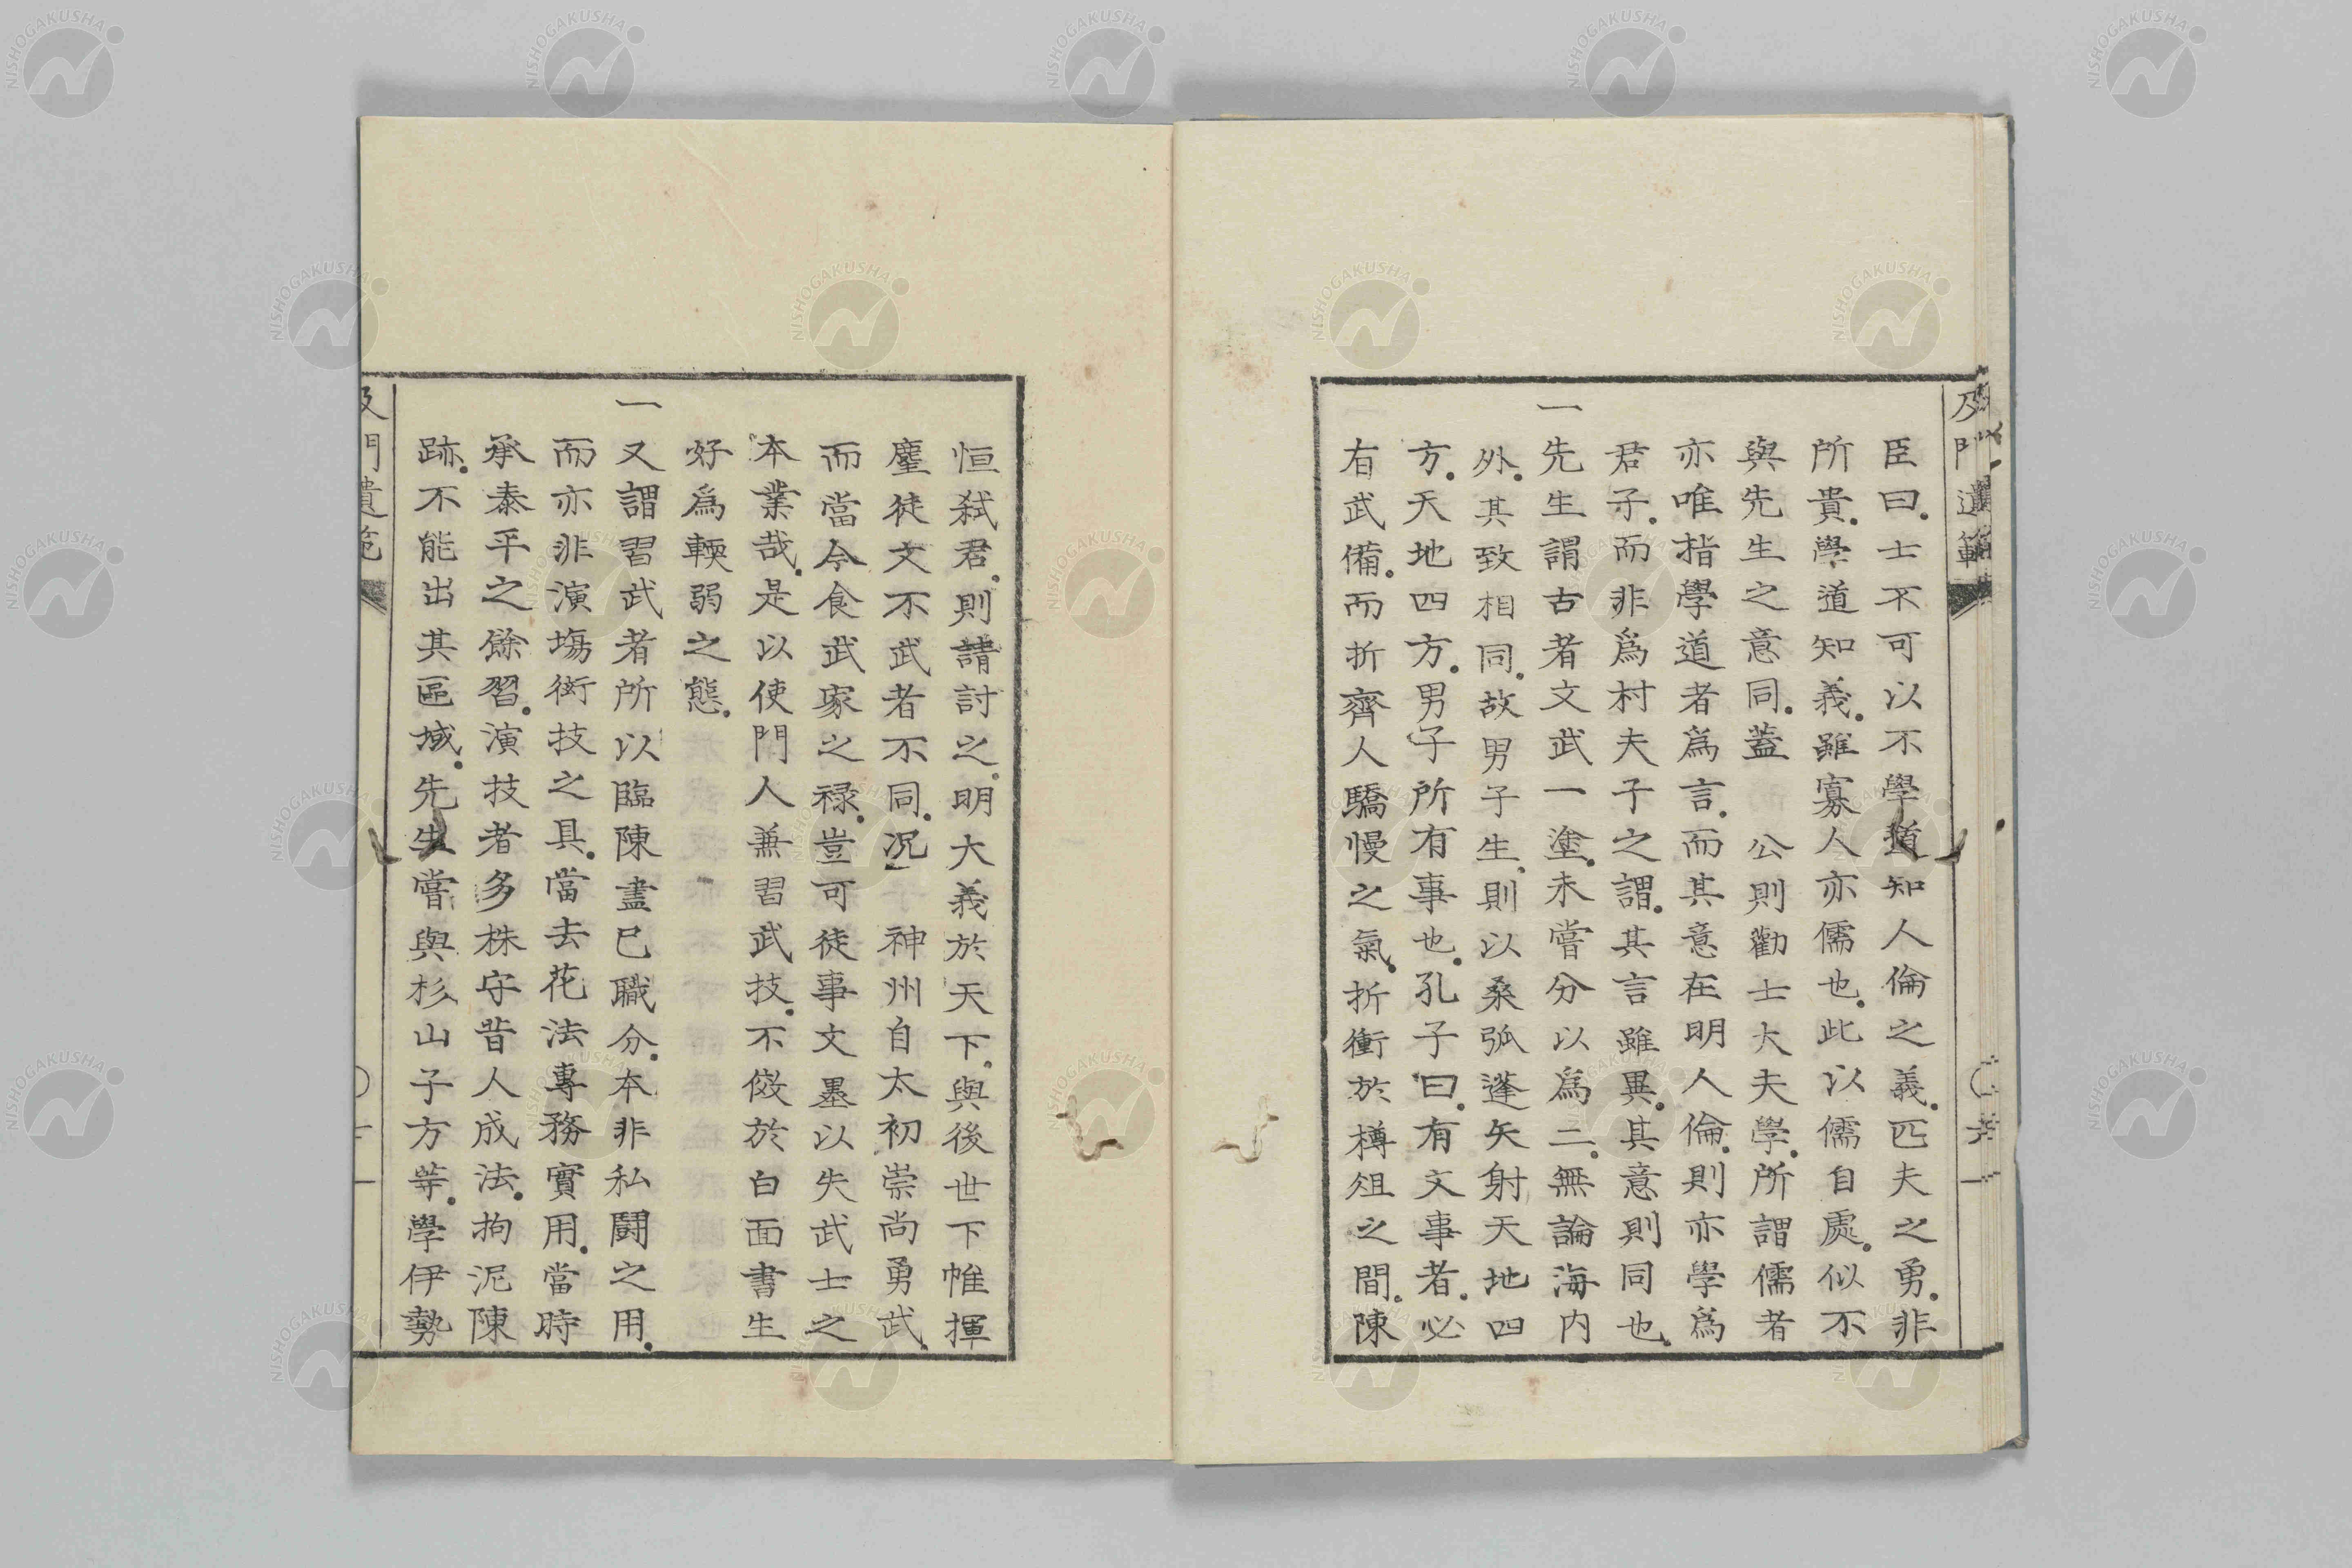 臣曰。士不可以不學道知人倫之義。匹夫之勇。非
所貴。學道知義。雖寡人亦儒也。此以儒自處。似不
與先生之意同。蓋 公則勸士大夫學。所謂儒者
亦唯指學道者爲言。而其意在明人倫。則亦學爲
君子。而非爲村夫子之謂。其言雖異。其意則同也。
一先生謂古者文武一塗。未嘗分以爲二。無論海内
外。其致相同。故男子生。則以桑弧蓬矢射天地四
方。天地四方。男子所有事也。孔子曰。有文事者。必
有武備。而折齊人驕慢之氣。折衝於樽俎之間。陳
恒弑君。則請討之。明大義於天下。與後世下帷揮
麈徒文不武者不同。况 神州自太初崇尚勇武。
而當今食武家之禄。豈可徒事文墨以失武士之
本業哉。是以使門人兼習武技。不傚於白面書生
好爲輭弱之態。
一又謂習武者所以臨陳盡已職分。本非私鬪之用。
而亦非演塲衒技之具。當去花法專務實用。當時
承泰平之餘習。演技者多株守昔人成法。拘泥陳
跡。不能出其區域。先生嘗與杉山子方等。學伊勢
及門遺範
及門遺範
NISHOGAKUSHA